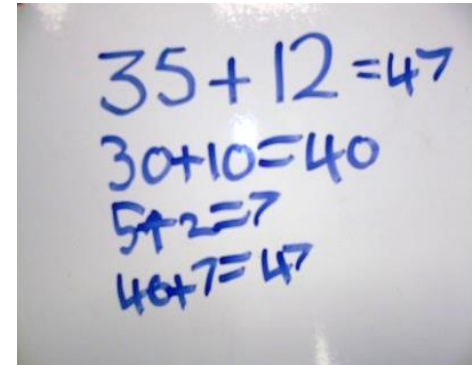 35+12=47
30+10=40
5+2=7
40+7=47